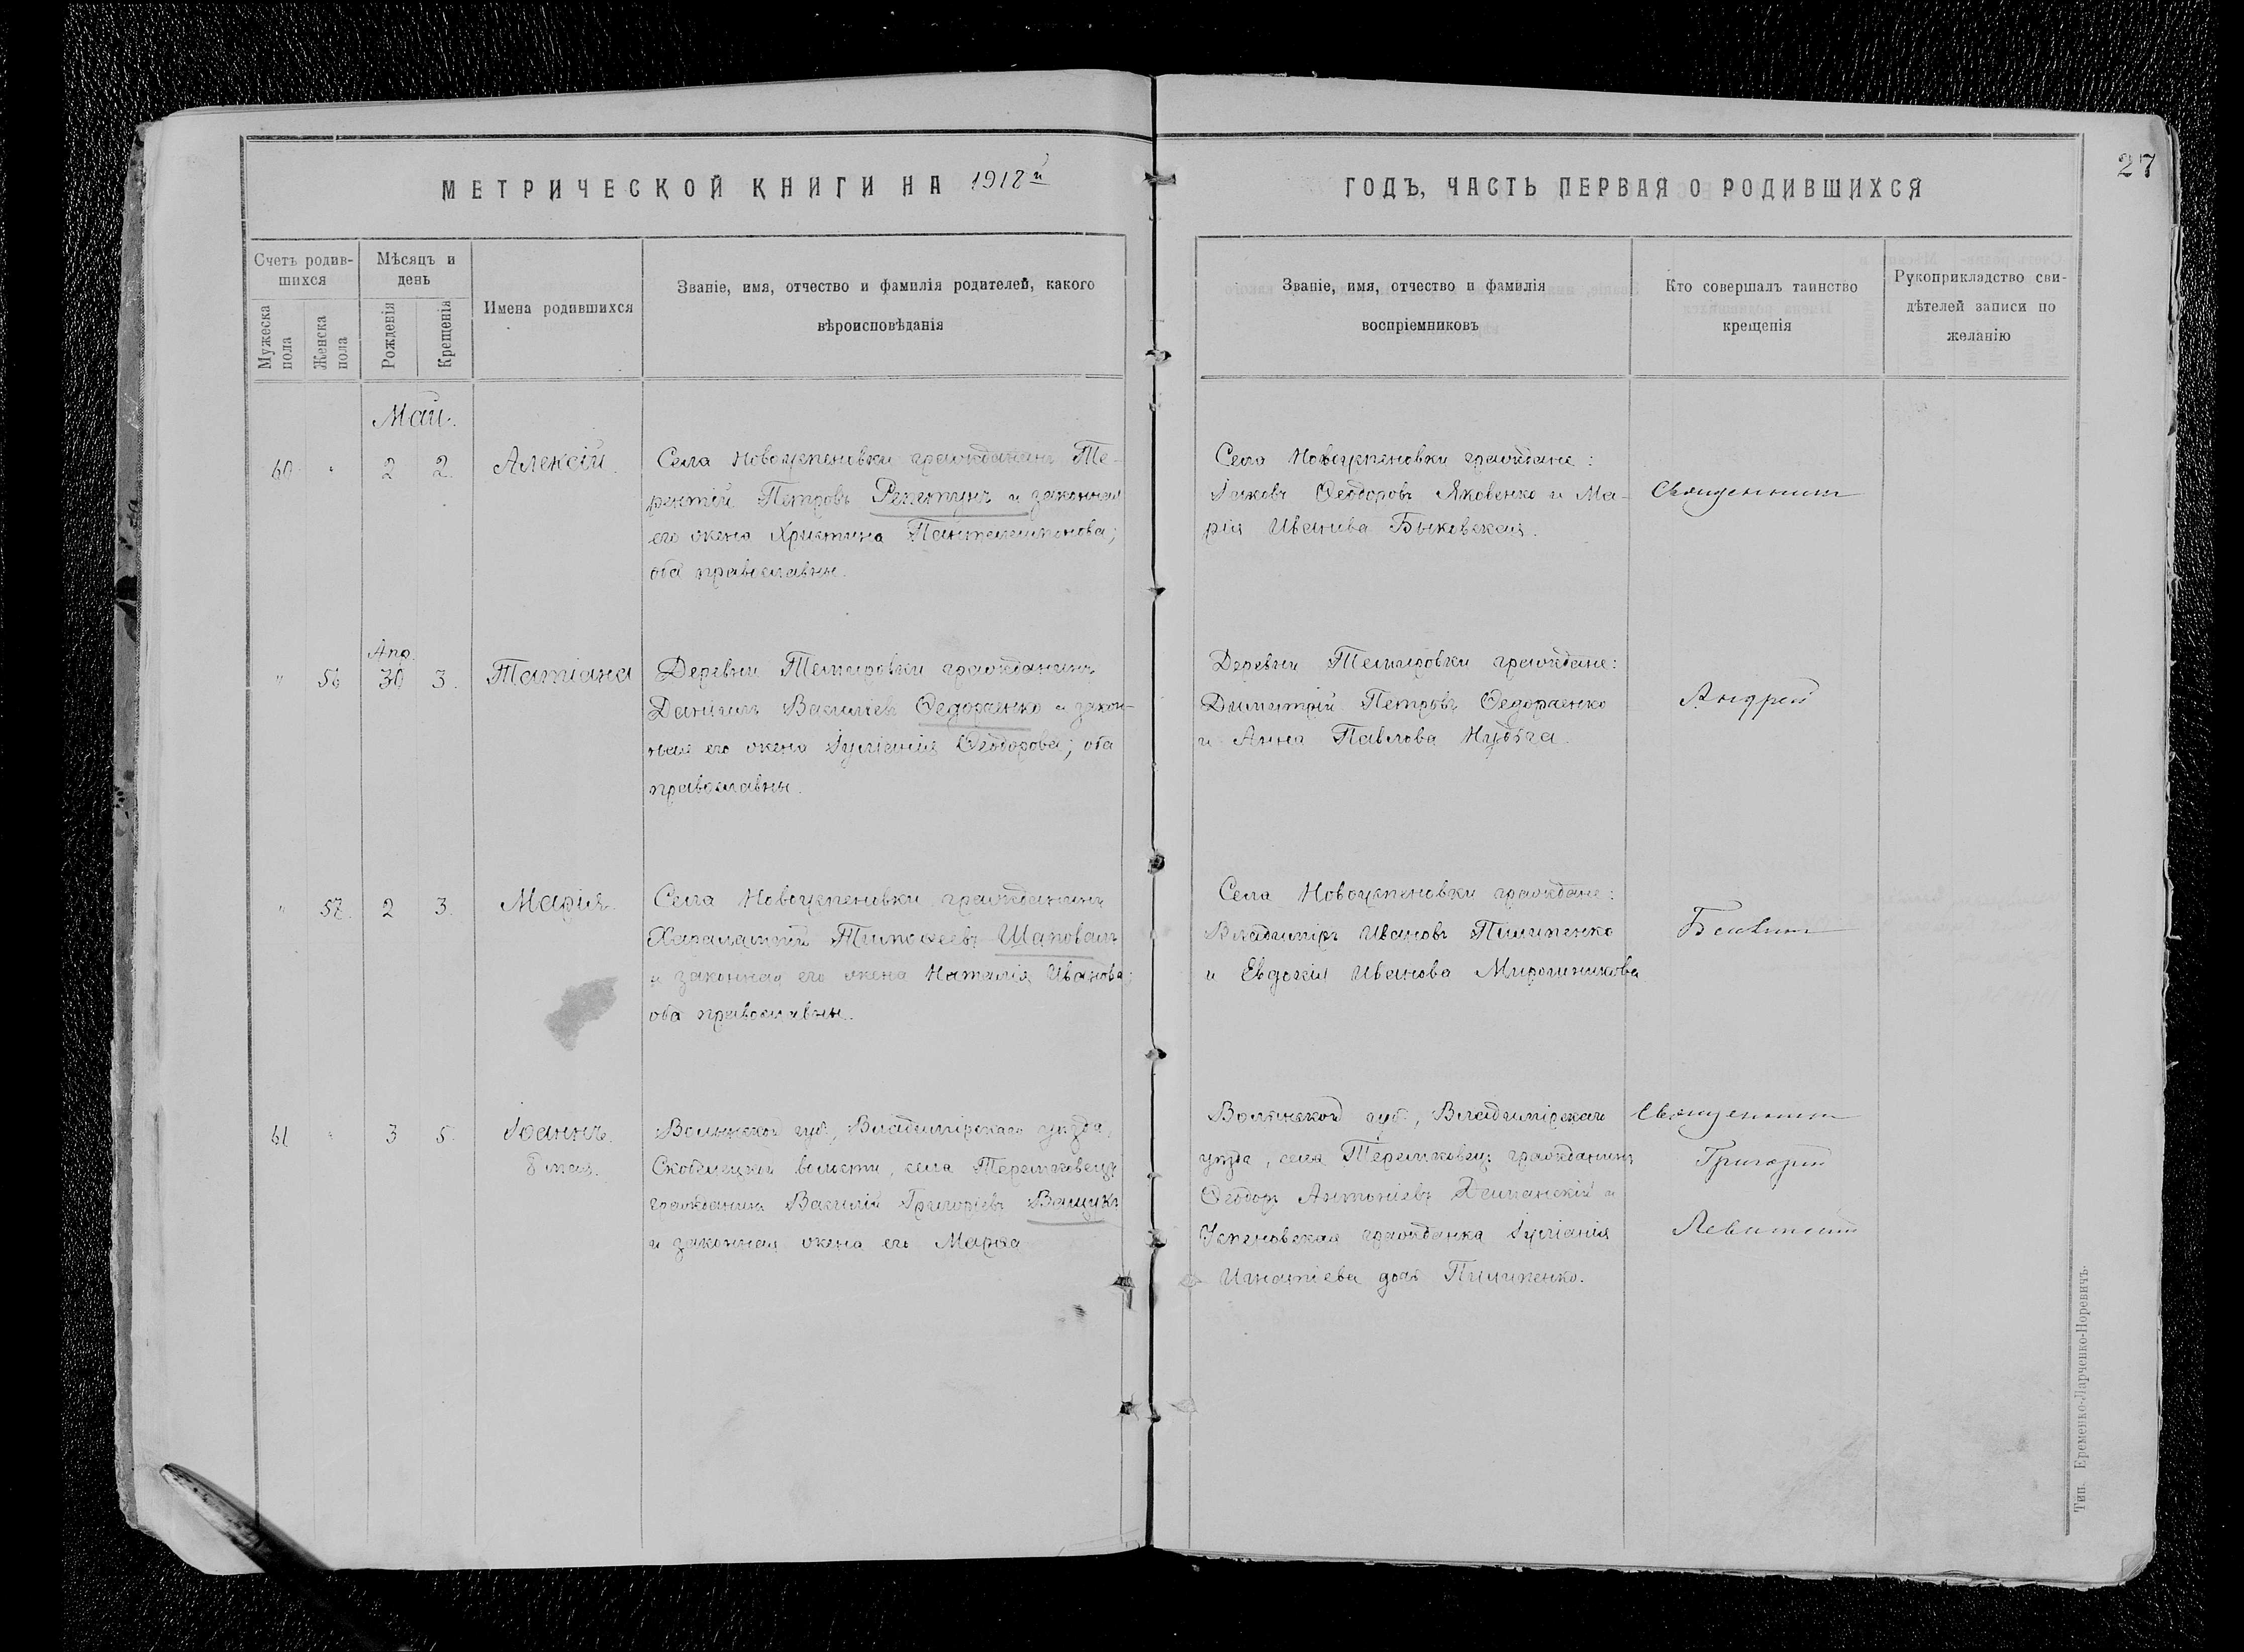 27
МЕТРИЧЕСКОЙ КНИГИ НА 1918й
ГОДЪ, ЧАСТЬ ПЕРВАЯ О РОДИВШИХСЯ
Счетъ родив-
шихся
Мужеска
пола
Женска
пола
Мѣсяцъ и
день
Рожденія
Крещенія
Имена родившихся
Званіе, имя, отчество и фамилія родителей, какого
вѣроисповѣданія
Званіе, имя, отчество и фамилія
воспріемниковъ
Кто совершалъ таинство
крещенія
Рукоприкладство сви-
дѣтелей записи по
желанію
Май.
60 " 2 2 Алексій.
Села Новоуспеновки гражданинъ Те-
рентій Петровъ Репетунъ и законная
его жена Христина Пантелеимонова;
оба православны.
Села Новоуспеновки граждане:
Іаковъ Ѳеодоровъ Яковенко и Ма-
рія Иванова Быковская.
Священникъ
Апр.
" 56 30 3. Татіана
Деревни Темировки гражданинъ
Даніилъ Василіевъ Ѳедораенко и закон-
ная его жена Іуліанія Ѳеодорова; оба
православны.
Деревни Темировки граждане:
Димитрій Петровъ Ѳедораенко
и Анна Павлова Нудьга.
Андрей
" 57. 2 3. Марія.
Села Новоуспеновки гражданинъ
Харалампій Тимоѳеевъ Шаповалъ
и законная его жена Наталія Иванова;
оба православны.
Села Новоуспеновки граждане:
Владиміръ Ивановъ Пилипенко
и Евдокія Иванова Мирошникова
61 " 3 5. Іоаннъ.
8 мая.
Волынской губ., Владимірскаго уѣзда,
волости, села
гражданинъ Василій Григоріевъ Ващукъ
и законная жена его Марѳа
Волынской губ., Владимірскаго
уѣзда, села гражданинъ
Ѳеодоръ Антоніевъ и
Успеновская гражданка Іуліанія
Игнатіева дочь Пилипенко.
Священникъ
Григорій
Левитскій
Тип. Еременко-Ларченко-Поревичъ.